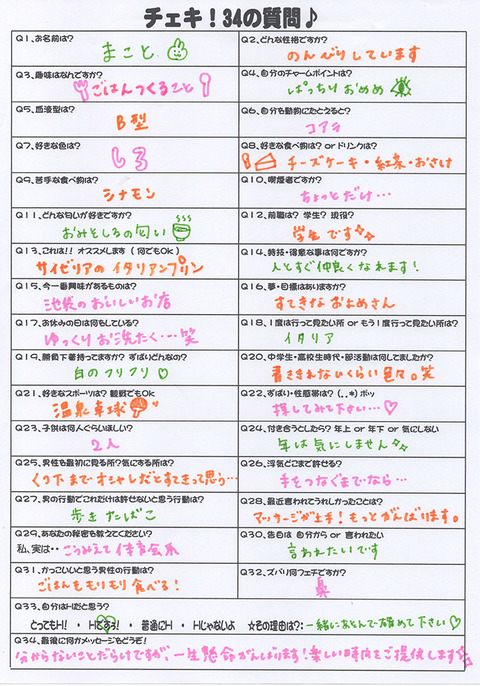 チェキ!34の質問♪
Q1、お名前は?
まこと
Q2、どんな性格ですか?
のんびりしています
Q3、趣味はなんですか?
ごはんつくること
Q4、自分のチャームポイントは?
ぱっちりおめめ
Q5、血液型は?
B型
Q6、自分を動物にたとえると?
コアラ
Q7、好きな色は?
しろ
Q8、好きな食べ物は? or ドリンクは?
チーズケーキ・紅茶・おさけ
Q9、苦手な食べ物は?
シナモン
Q10、喫煙者ですか?
ちょっとだけ…
Q11、どんな匂いが好きですか?
おみそしるの匂い
Q12、前職は? 学生? 現役?
学生です☆
Q13、これは!! オススメします (何でもOk)
サイゼリアのイタリアンプリン
Q14、特技・得意な事は何ですか?
人とすぐ仲良くなれます!
Q15、今一番興味があるものは?
池袋のおいしいお店
Q16、夢・目標はありますか?
すてきなおよめさん
Q17、お休みの日は何をしている?
ゆっくりお洗たく…笑
Q18、1度は行って見たい所 or もう1度行って見たい所は?
イタリア
Q19、勝負下着持ってますか? ずばりどんなの?
白のフリフリ♡
Q20、中学生・高校生時代・部活動は何してましたか?
書ききれないくらい色々。笑
Q21、好きなスポーツは? 観戦でもOK
温泉卓球
Q22、ずばり・性感帯は? (..*)ポッ
探してみて下さい…♡
Q23、子供は何人ぐらいほしい?
2人
Q24、付き合うとしたら? 年上 or 年下 or 気にしない
年は気にしません☆
Q25、男性を最初に見る所?気にする所は?
くつ下までオシャレだとすてきって思う…
Q26、浮気どこまで許せる?
手をつなぐまでなら…
Q27、男の行動でこれだけは許せないと思う行動は?
歩きたばこ
Q28、最近言われてうれしかったことは?
マッサージが上手!もっとがんばります。
Q29、あなたの秘密を教えてください?
私、実は・・こうみえて体育会系
Q30、告白は 自分から or 言われたい
言われたいです
Q31、かっこいいと思う男性の行動は?
ごはんをもりもり食べる!
Q32、ズバリ何フェチですか?
鼻
Q33、自分はHだと思う?
とってもH! ・ Hですぅ! ・ 普通にH ・ Hじゃないよ ☆その理由は?:一緒にあとんで確めて下さい♡
Q34、最後に何かメッセージをどうぞ!
分からないことだらけですが、一生懸命がんばります!楽しい時間をご提供します☆